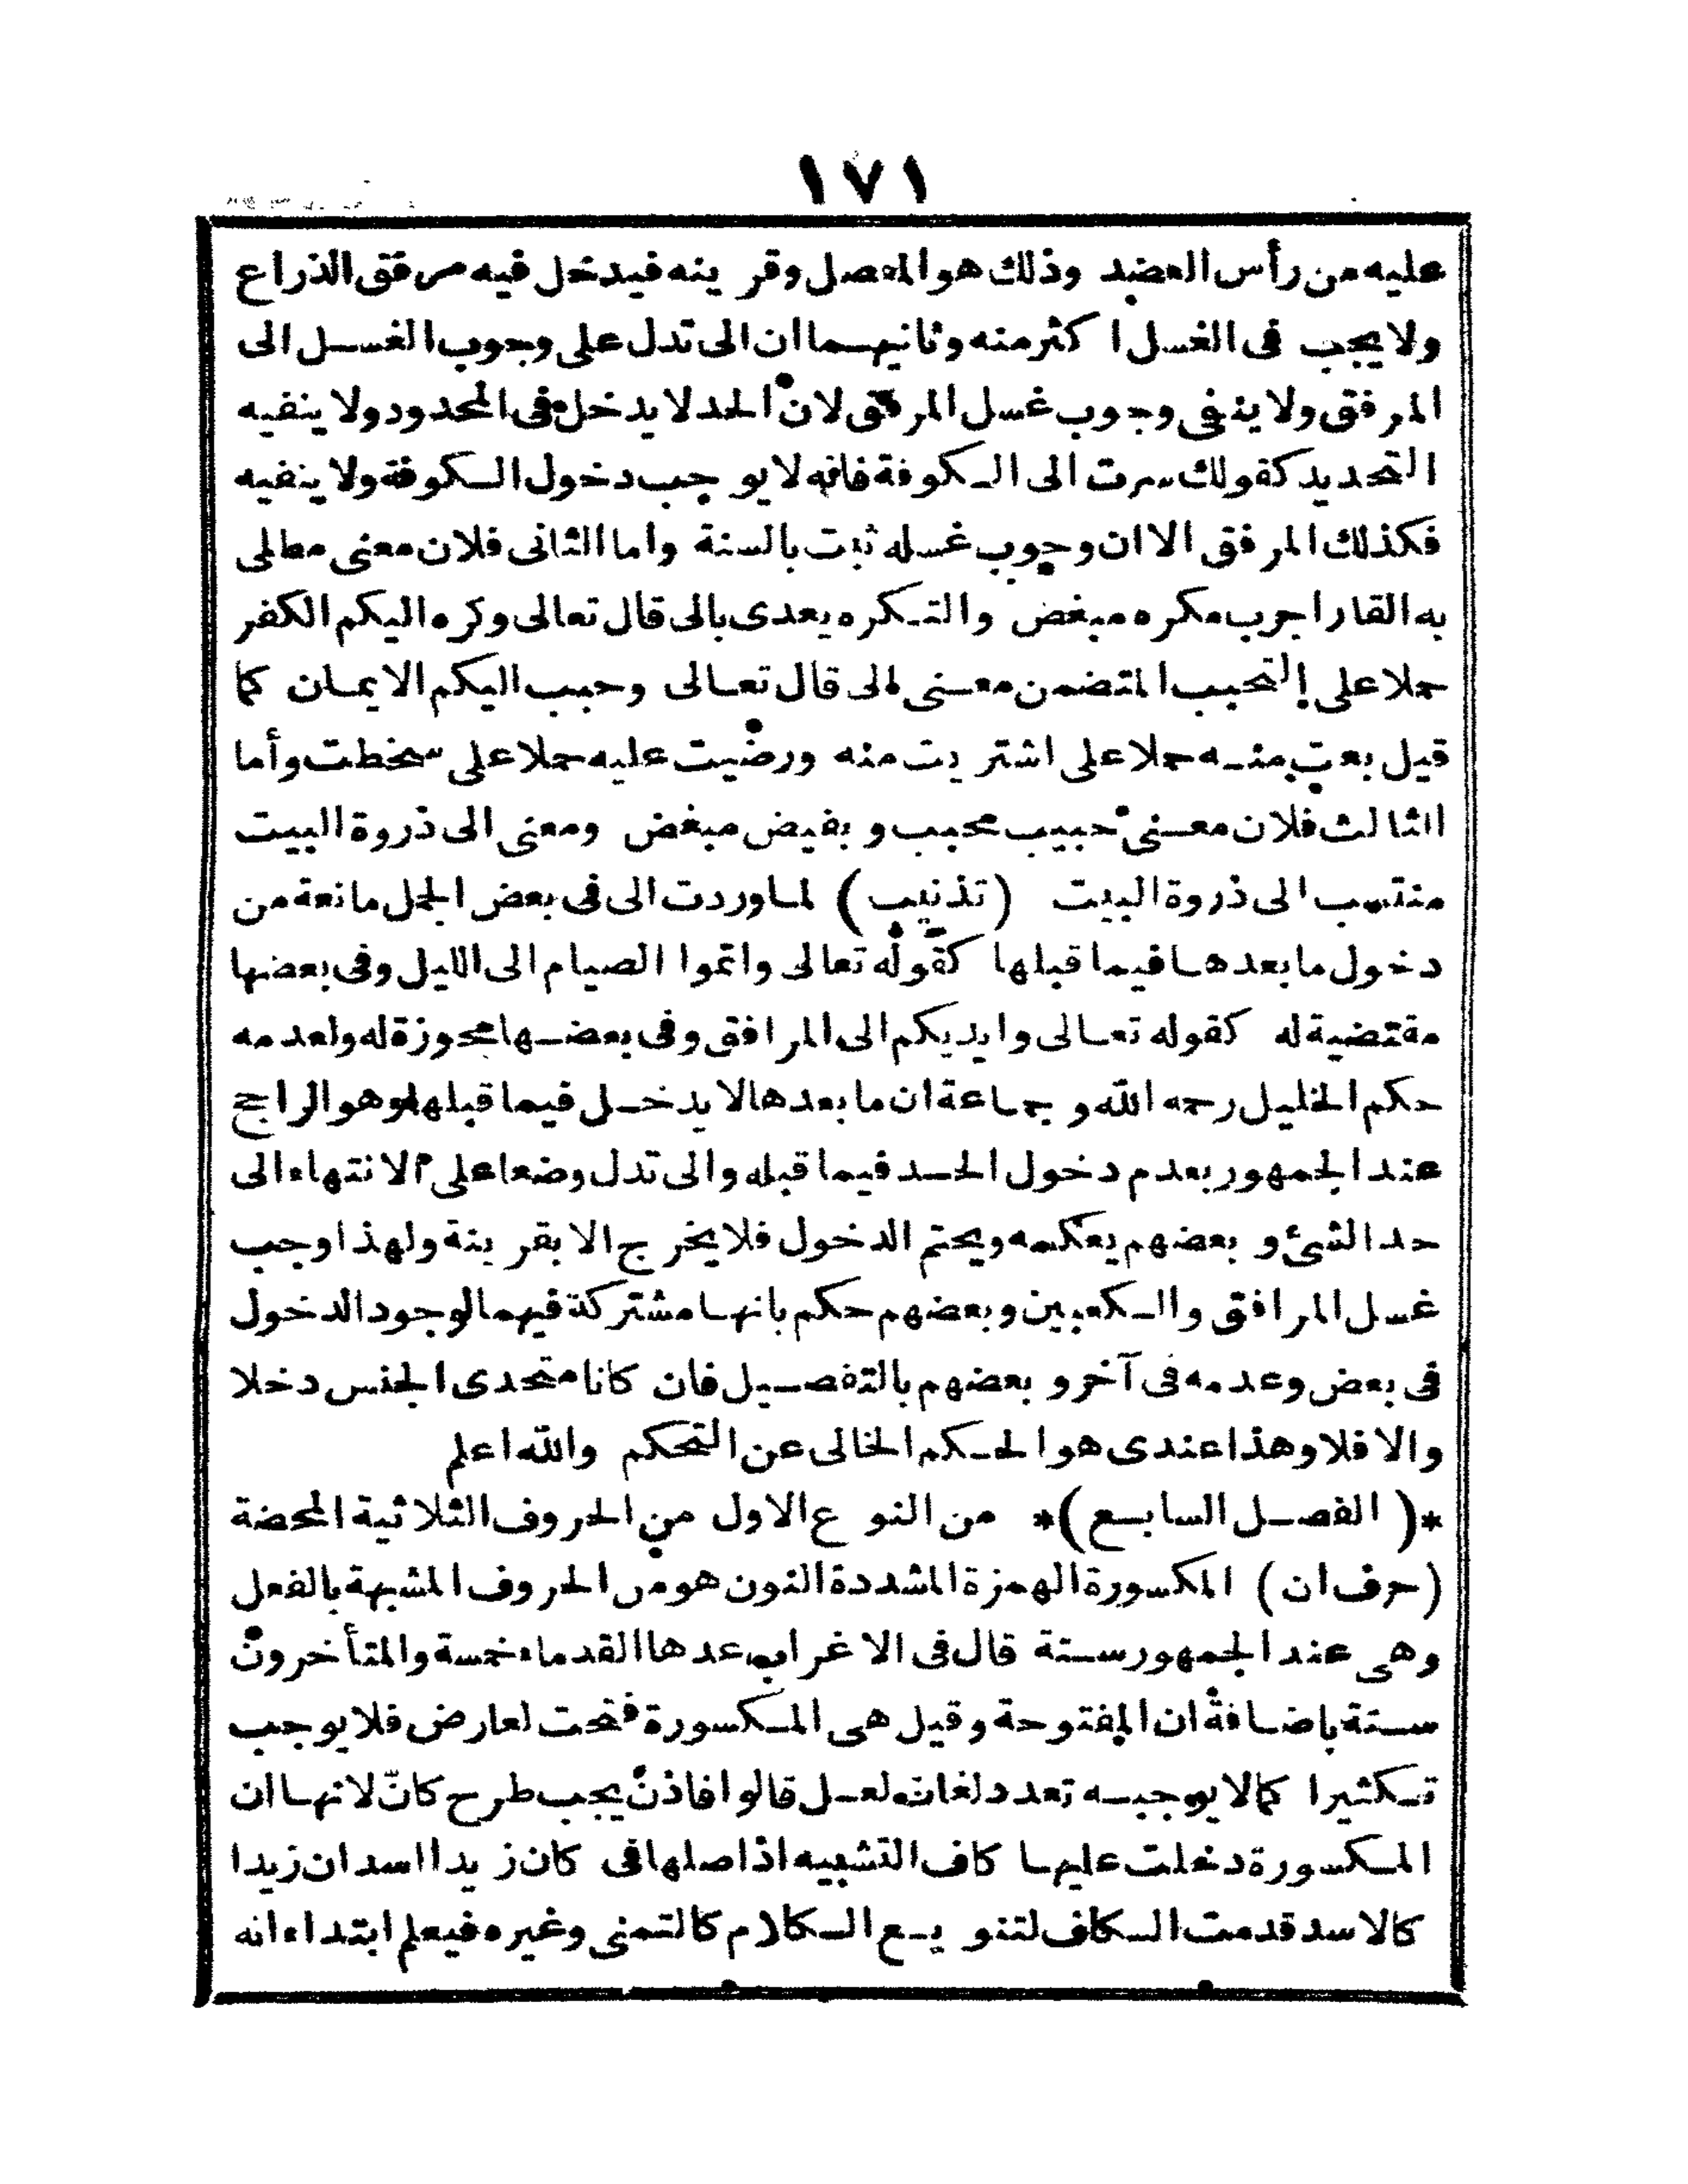 ١٧١
عليه من رأس العضد وذلك هو المفصل وقرينه فيدخل فيه مرفق الذراع
ولا يجب فى الغسل اكثر منه وثانيهما ان الى تدل على وجوب الغسل الى
المرفق ولا ينفى وجوب غسل المرفق لان الحد لا يدخل فى المحدود ولا ينفيه
التحديد كقولك سرت الى الكوفة فانه لا يوجب دخول الكوفة ولا ينفيه
فكذلك المرفق الا ان وجوب غسله ثبت بالسنة واما الثانى فلان معنى مطلى
به القار اجرب مكره مبغض والتكره يعدى بالى قال تعالى وكره اليكم الكفر
حملا على التحبيب المتضمن معنى الى قال تعالى وحبب اليكم الايمان كما
قيل بعت منه حملا على اشتريت منه ورضيت عليه حملا على سخطت وأما
الثالث فلان معنى حبيب محبب وبغيض مبغض ومعنى الى ذروة البيت
منتسب الى ذروة البيت (تذنيب) لما وردت الى فى بعض الجمل مانعة من
دخول ما بعدها فيما قبلها كقوله تعالى واتموا الصيام الى الليل وفى بعضها
مقتضية له كقوله تعالى وايديكم الى المرافق وفى بعضها مجوزة له ولعدمه
حكم الخليل رحمه الله وجماعة ان ما بعدها لا يدخل فيما قبلها وهو الراجح
عند الجمهور بعدم دخول الحد فيما قبله والى تدل وضعا على الانتهاء الى
حد الشئ وبعضهم يعكسه ويحتم الدخول فلا يخرج الا بقرينة ولهذا وجب
غسل المرافق والكعبين وبعضهم حكم بانها مشتركة فيهما لوجود الدخول
فى بعض وعدمه فى آخر وبعضهم بالتفصيل فان كانا متحدى الجنس دخلا
والا فلا وهذا عندى هو الحكم الخالى عن التحكم والله اعلم
*( الفصل السابع )* من النوع الاول من الحروف الثلاثية المحضة
(حرف ان) المكسورة الهمزة المشددة النون هو من الحروف المشبهة بالفعل
وهى عند الجمهور ستة قال فى الاغراب عدها القدماء خمسة والمتأخرون
ستة باضافة ان المفتوحة وقيل هى المكسورة فتحت لعارض فلا يوجب
تكثيرا كما لا يوجبه تعدد لغات لعل قالوا فاذن يجب طرح كانّ لانها ان
المكسورة دخلت عليها كاف التشبيه اذ اصلها فى كان زيدا اسد ان زيدا
كالاسد قدمت الكاف لتنويع الكلام كالتمنى وغيره فيعلم ابتداء انه